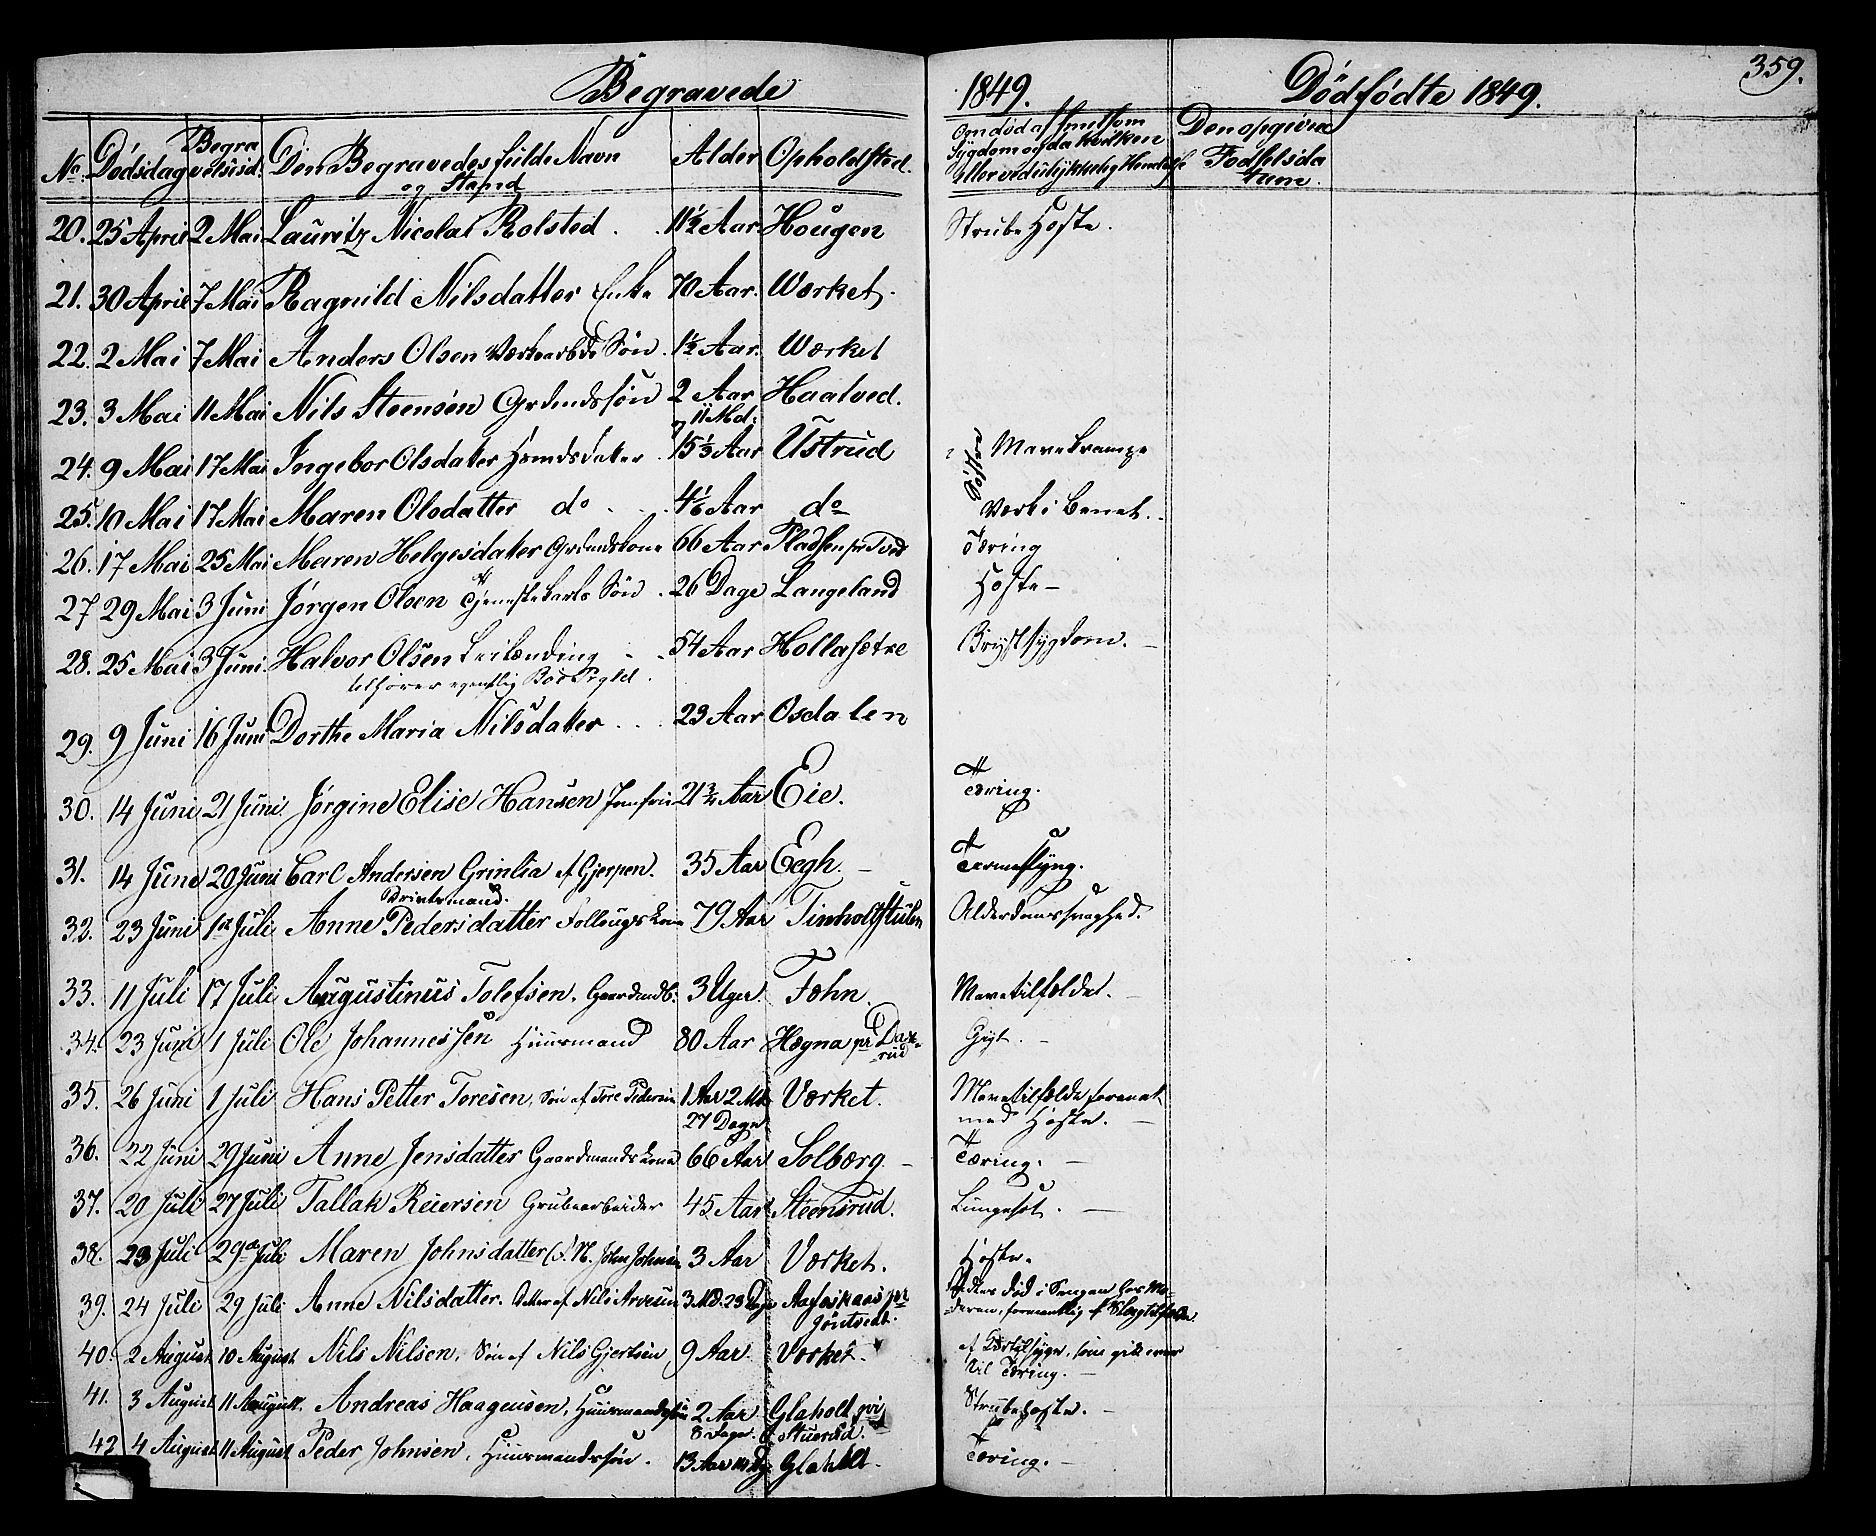 Begravede 1849. Dødfødte 1849. 359.
No. Dødsdag Begravelsesd: Den Begravedes fulde Navn og Stand Alder Opholdsted.
Om død af smitsom Sygdom og da hvilken
eller ved ulykkelig Hendelse Den opgivne Fødselsdatum.
20. 25 April 2 Mai Lauritz Nicolai Rolsted. 11½ Aar Hougen Strubehoste.
21. 30 April 7 Mai Ragnild Nilsdatter Enke 70 Aar. Wærket.
22. 2 Mai 7 Mai Anders Olsen Værksarbds Søn. 1½ Aar. Wærket
23. 3 Mai 11 Mai Nils Steensen Grdmdssøn 2 Aar Haatved.
11 Md:
24. 9 Mai 17 Mai Ingebor Olsdater Hsmdsdater. 15½ Aar Ustrud Mavekrampe
25. 10 Mai 17 Mai Maren Olsdatter do 4½ Aar do Værk i Benet.
26. 17 Mai 25 Mai Maren Helgesdater Grdmdskone 66 Aar Pladsen pr Tved Tæring
27 29 Mai 3 Juni Jørgen Olsen Tjenestekarls Søn. 26 Dage Langeland Hoste
28. 25 Mai 3 Juni Halvor Olsen Leilænding 54 Aar Hollasætre Brystsygdom.
tilhører egentlig Bøe Prgld.
29. 9 Juni 16 Juni Dorthe Maria Nilsdatter 23 Aar Osdalen
30. 14 Juni 21 Juni Jørgine Elise Hansen Jomfru 21¾ Aar Eie. Tæring.
31. 14 June 20 Juni Carl Andersen Grinlia af Gjerpen. 35 Aar Eegh.
Drivtsmand.
32. 23 Juni 1st Juli Anne Pedersdatter Follougskone 79 Aar Tinholtstulen Alderdomssvaghed.
33. 11 Juli 17 Juli Augustinus Tolefsen. Gaardmdb: 3 Uger. Fæhn. Mavetilfældet.
34. 23 Juni 1 Juli Ole Johannessen Huusmand 80 Aar Hægna pr Daxrud Gigt.
35. 26 Juni 1 Juli Hans Petter Toresen, Søn af Tore Pedersen 1 Aar 2 Md Værket. Mavetilfælde forenet
27 Dage med Hoste.
36. 22 Juni 29 Juni Anne Jensdatter Gaardmandskone 66 Aar Solberg. Tæring.
37. 20 Juli 27 Juli Tallak Reiersen Grubearbeider 45 Aar Steensrud. Lungesot.
38. 23 Juli 29de Juli Maren Johnsdatter John Johnsen 3 Aar Værket. Hoste.
39. 24 Juli 29 Juli Anne Nilsdatter. Datter af Nils Arvesen 3 Md. 23 Dge Aafoskaas pr Jøntvedt. død i Sengen hos Moderen, formentlig af Slagtilfælde
40. 2 August 10 August Nils Nilsen, Søn af Nils Gjertsen 9 Aar. Værket. som gik over til Tæring.
41. 3 August 11 August. Andreas Haagensen, Huusmandssøn 2 Aar Glaholt pr Stuerud. Strubehoste.
8 Dage.
42 4 August 11 August Peder Johnsen, Huusmandssøn. 13 Aar 14 Dg Glaholt. Tæring.